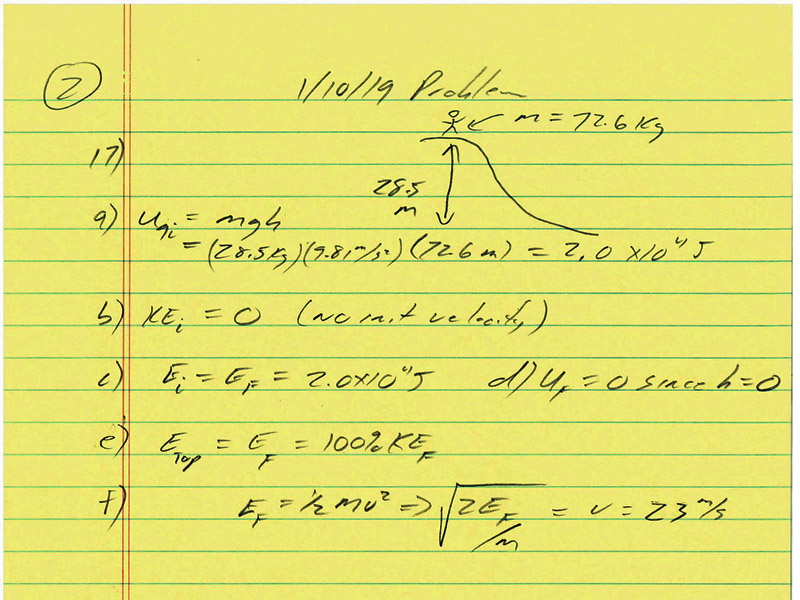 2
1/10/19 Problem
m = 72.6 kg
17)
28.5
m
a) Ugi = mgh
= (28.5kg)(9.81m/s²)(72.6m) = 2.0 x10⁴ J
b) KEi = 0 (no init velocity)
c) Ei = EF = 2.0x10⁴J d) UF = 0 since h=0
e) ETop = EF = 100% KEF
f) EF = ½ mv² => √2EF/m = v = 23 m/s